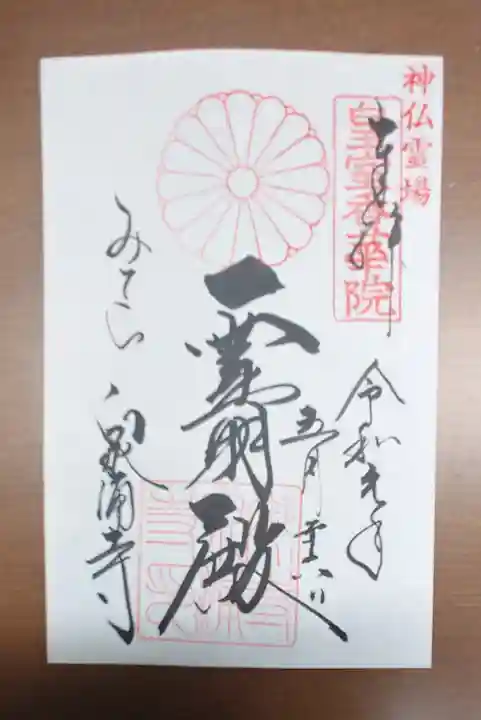 神仏霊場
皇室香華院
奉拝
令和元年
五月二十八日
霊明殿
みてら
泉涌寺